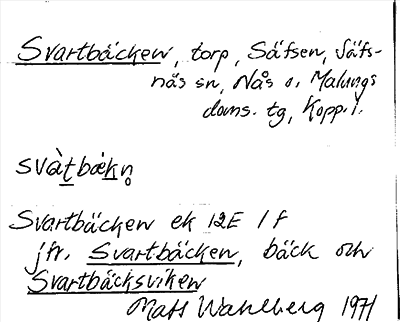 Svartbäcken, torp, Säfsen, Säfs-
näs sn, Nås o. Malungs
doms. tg, Kopp. l.
svàt̲bäk̲n̥
Svartbäcken ek 12E 1f
jfr. Svartbäcken, bäck och
Svartbäcksviken
Mats Wahlberg 1971